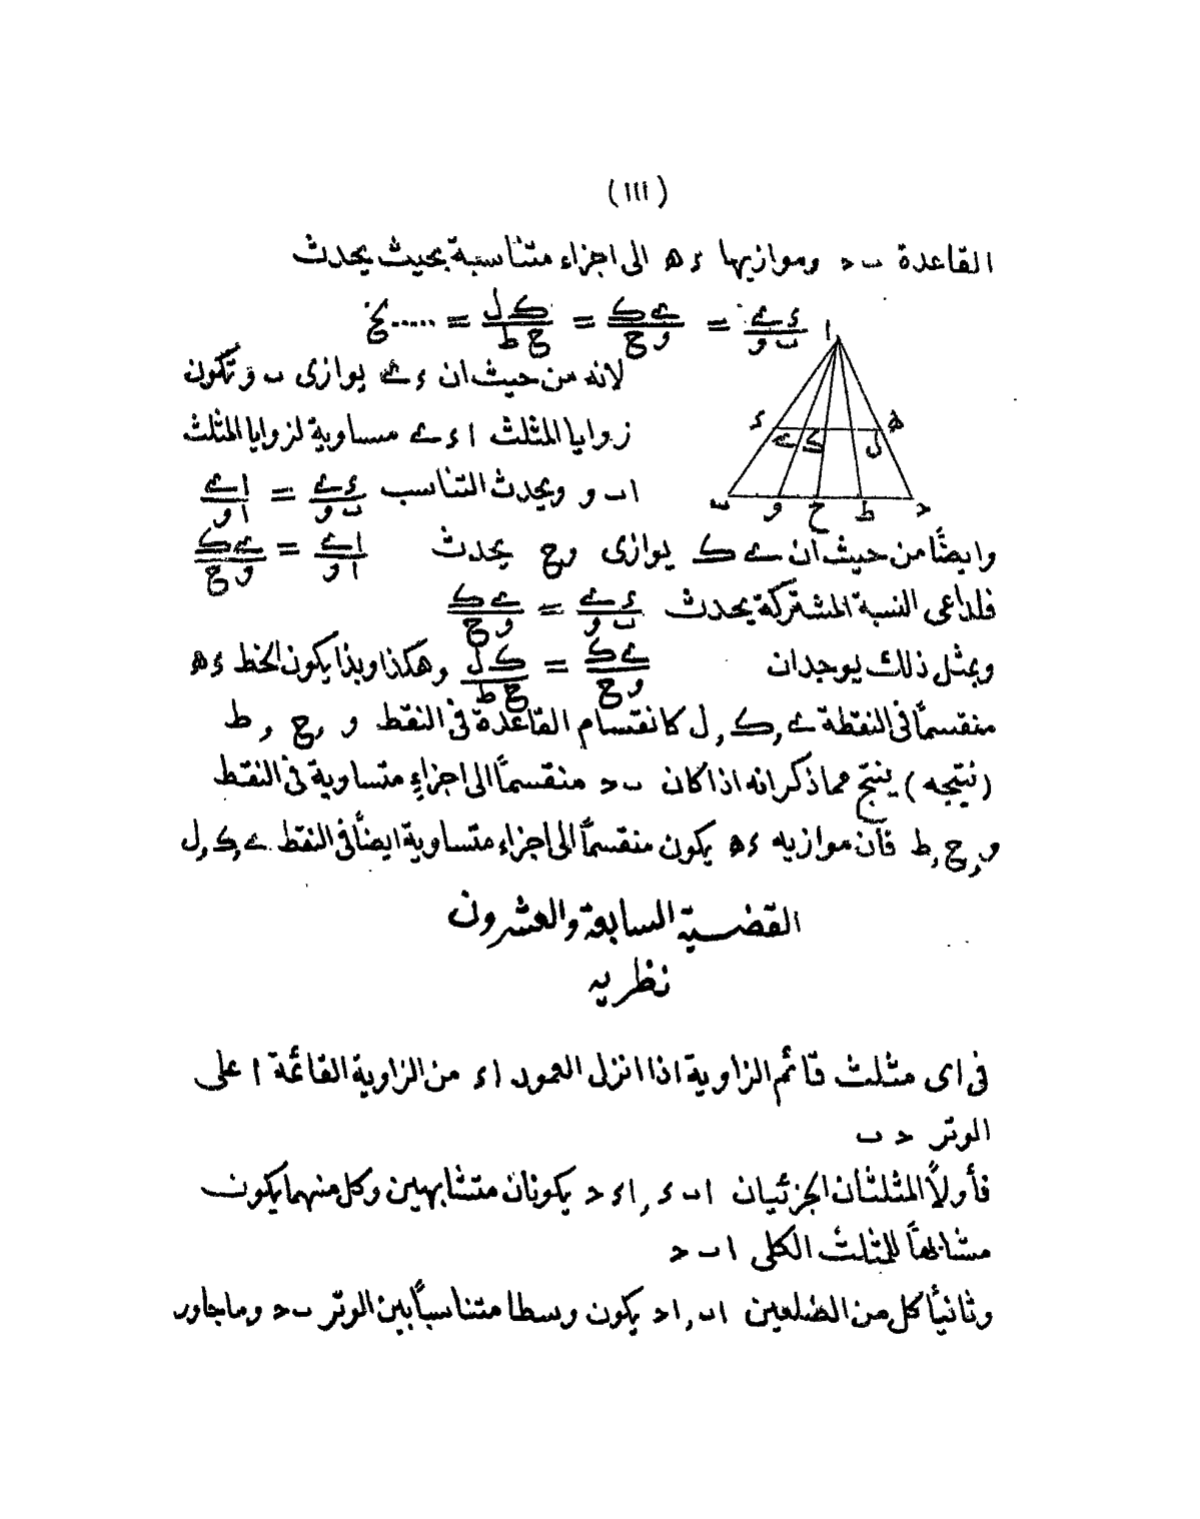 (١١١)
القاعدة ب ح وموازيها ء ه الى اجزاء متناسبة بحيث يحدث
ء ى / ب و = ى ك / و ج = ك ل / ج ط = ..... الخ
ا
ء ى ك ل ه
ب و ج ط ح
لانه من حيث ان ء ى يوازى ب و تكون
زوايا المثلث ا ء ى مساوية لزوايا المثلث
ا ب و ويحدث التناسب ء ى / ب و = ا ى / ا و
وايضًا من حيث ان ى ك يوازى و ج يحدث ا ى / ا و = ى ك / و ج
فلداعى النسبة المشتركة يحدث ء ى / ب و = ى ك / و ج
وبمثل ذلك يوجد ان ى ك / و ج = ك ل / ج ط وهكذا وبذا يكون الخط ء ه
منقسمًا فى النقطة ى , ك , ل كانقسام القاعدة فى النقط و , ج , ط
(نتيجه) ينتج مما ذكر انه اذا كان ب ح منقسمًا الى اجزاءٍ متساوية فى النقط
و , ج , ط فان موازيه ء ه يكون منقسمًا الى اجزاء متساوية ايضًا فى النقط ى , ك , ل
القضية السابعة والعشرون
نظريه
فى اى مثلث قائم الزاوية اذا انزل العمود ا ء من الزاوية القائمة ا على
الوتر ح ب
فأولاً المثلثان الجزئيان ا ب ء , ا ء ح يكونان متشابهين وكل منهما يكون
مشابهًا للمثلث الكلى ا ب ح
وثانيًا كل من الضلعين ا ب , ا ح يكون وسطا متناسبًا بين الوتر ب ح وما جاور